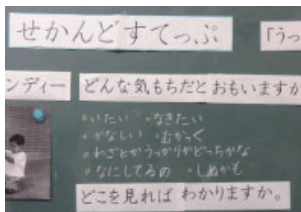 せかんどすてっぷ
「うっ
ンディー
どんな気もちだとおもいますか
・いたい ・なきたい
・かなしい ・むかつく
・わざとかうっかりかどっちかな
・なにしてるの ・しぬかも
どこを見ればわかりますか。